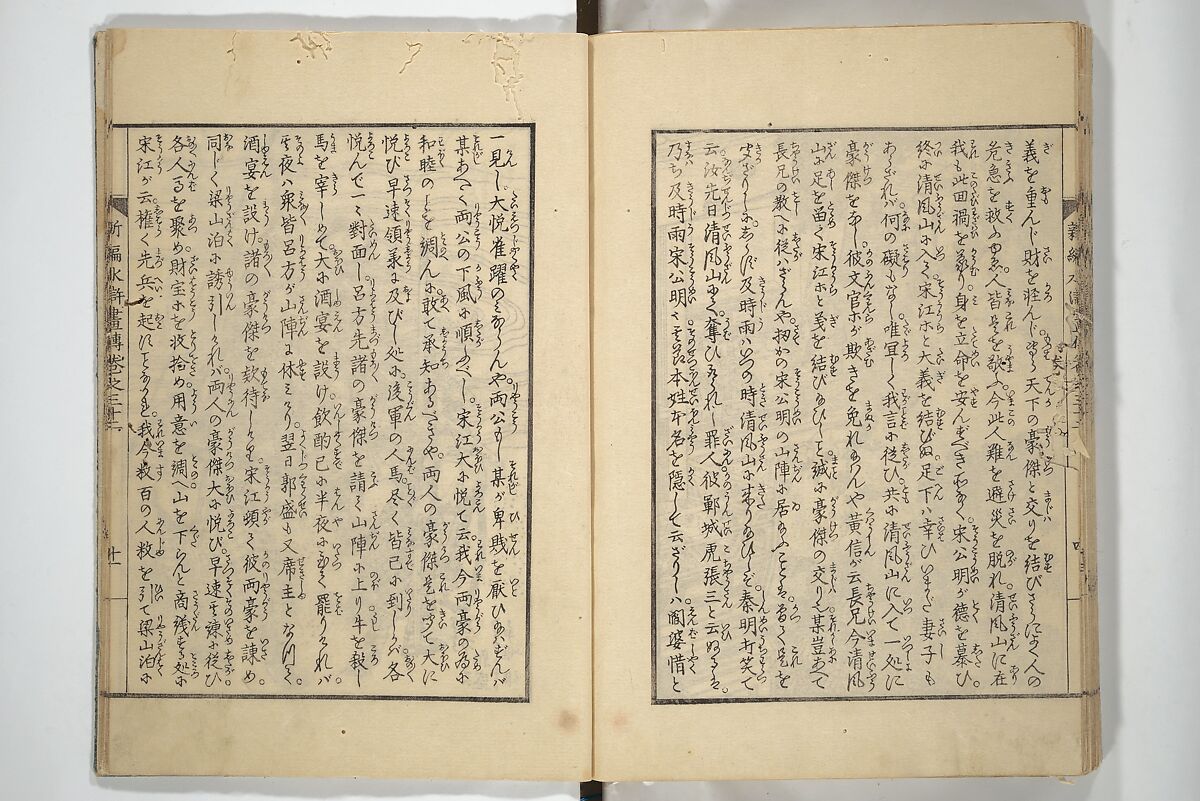 義を重んじ財を軽んじ普く天下の豪傑と交りを結びさらに人の
危急を救ふゆゑ人皆是を敬ふ今此人難を避災を脱れ清風山に在
我も此囬禍を身を立命を安んずべき宋公明が徳を慕ひ
終に清風山に入て宋江ホと大義を結びぬ足下ハ幸ひいまだ妻子も
あらざれバ何の礙もなし唯宜しく我言に従ひ共に清風山に入て一処に
豪傑をなし彼文官ホが欺きを免れ給へんや黄信が云長兄今清風
山に足を留く宋江ホと義を結び給ひしこと誠に豪傑の交り也某豈あへて
長兄の教へに従ハざらんや扨かの宋公明の山陣に居給ふことハ曽く是を
聞ざりしにしらバ及時雨ハいつの時清風山に来り給ひしぞ秦明打笑て
云汝先日清風山にて奪ひ去れし罪人彼鄆城虎張三と云ぬるハ
乃ち及時雨宋公明にて其本姓本名を隠して云ざりしハ閻婆惜と
新編水滸畫傳巻之三十二
一見し大悦雀躍のみならんや両公もし某が卑賎を厭ひ給ハずんバ
某あへて両公の下風に順ふべし宋江大に悦て云我今両豪の為に
和睦のことを調んに敢て承知あるべきや両人の豪傑是を聞て大に
悦び早速領掌に及びし処に後軍の人馬尽く皆已に到しかバ各
悦んで一々對面し呂方先諸の豪傑を請く山陣に上り牛を殺し
馬を宰しめて大に酒宴を設け飲酌已に半夜に至く罷りけれバ
其夜ハ衆皆呂方が山陣に休ミけり翌日郭盛も又席主となりて
酒宴を設け諸の豪傑を款待しける宋江頭く彼両豪を諫め
同じく梁山泊に誘引しけれバ両人の豪傑大に悦び早速其諫に従ひ
各人馬を聚め財宝ホを収拾め用意を調へ山を下らんと商議する処に
宋江が云權く先兵を起ことなかれ我今数百の人数を引て梁山泊に
十一